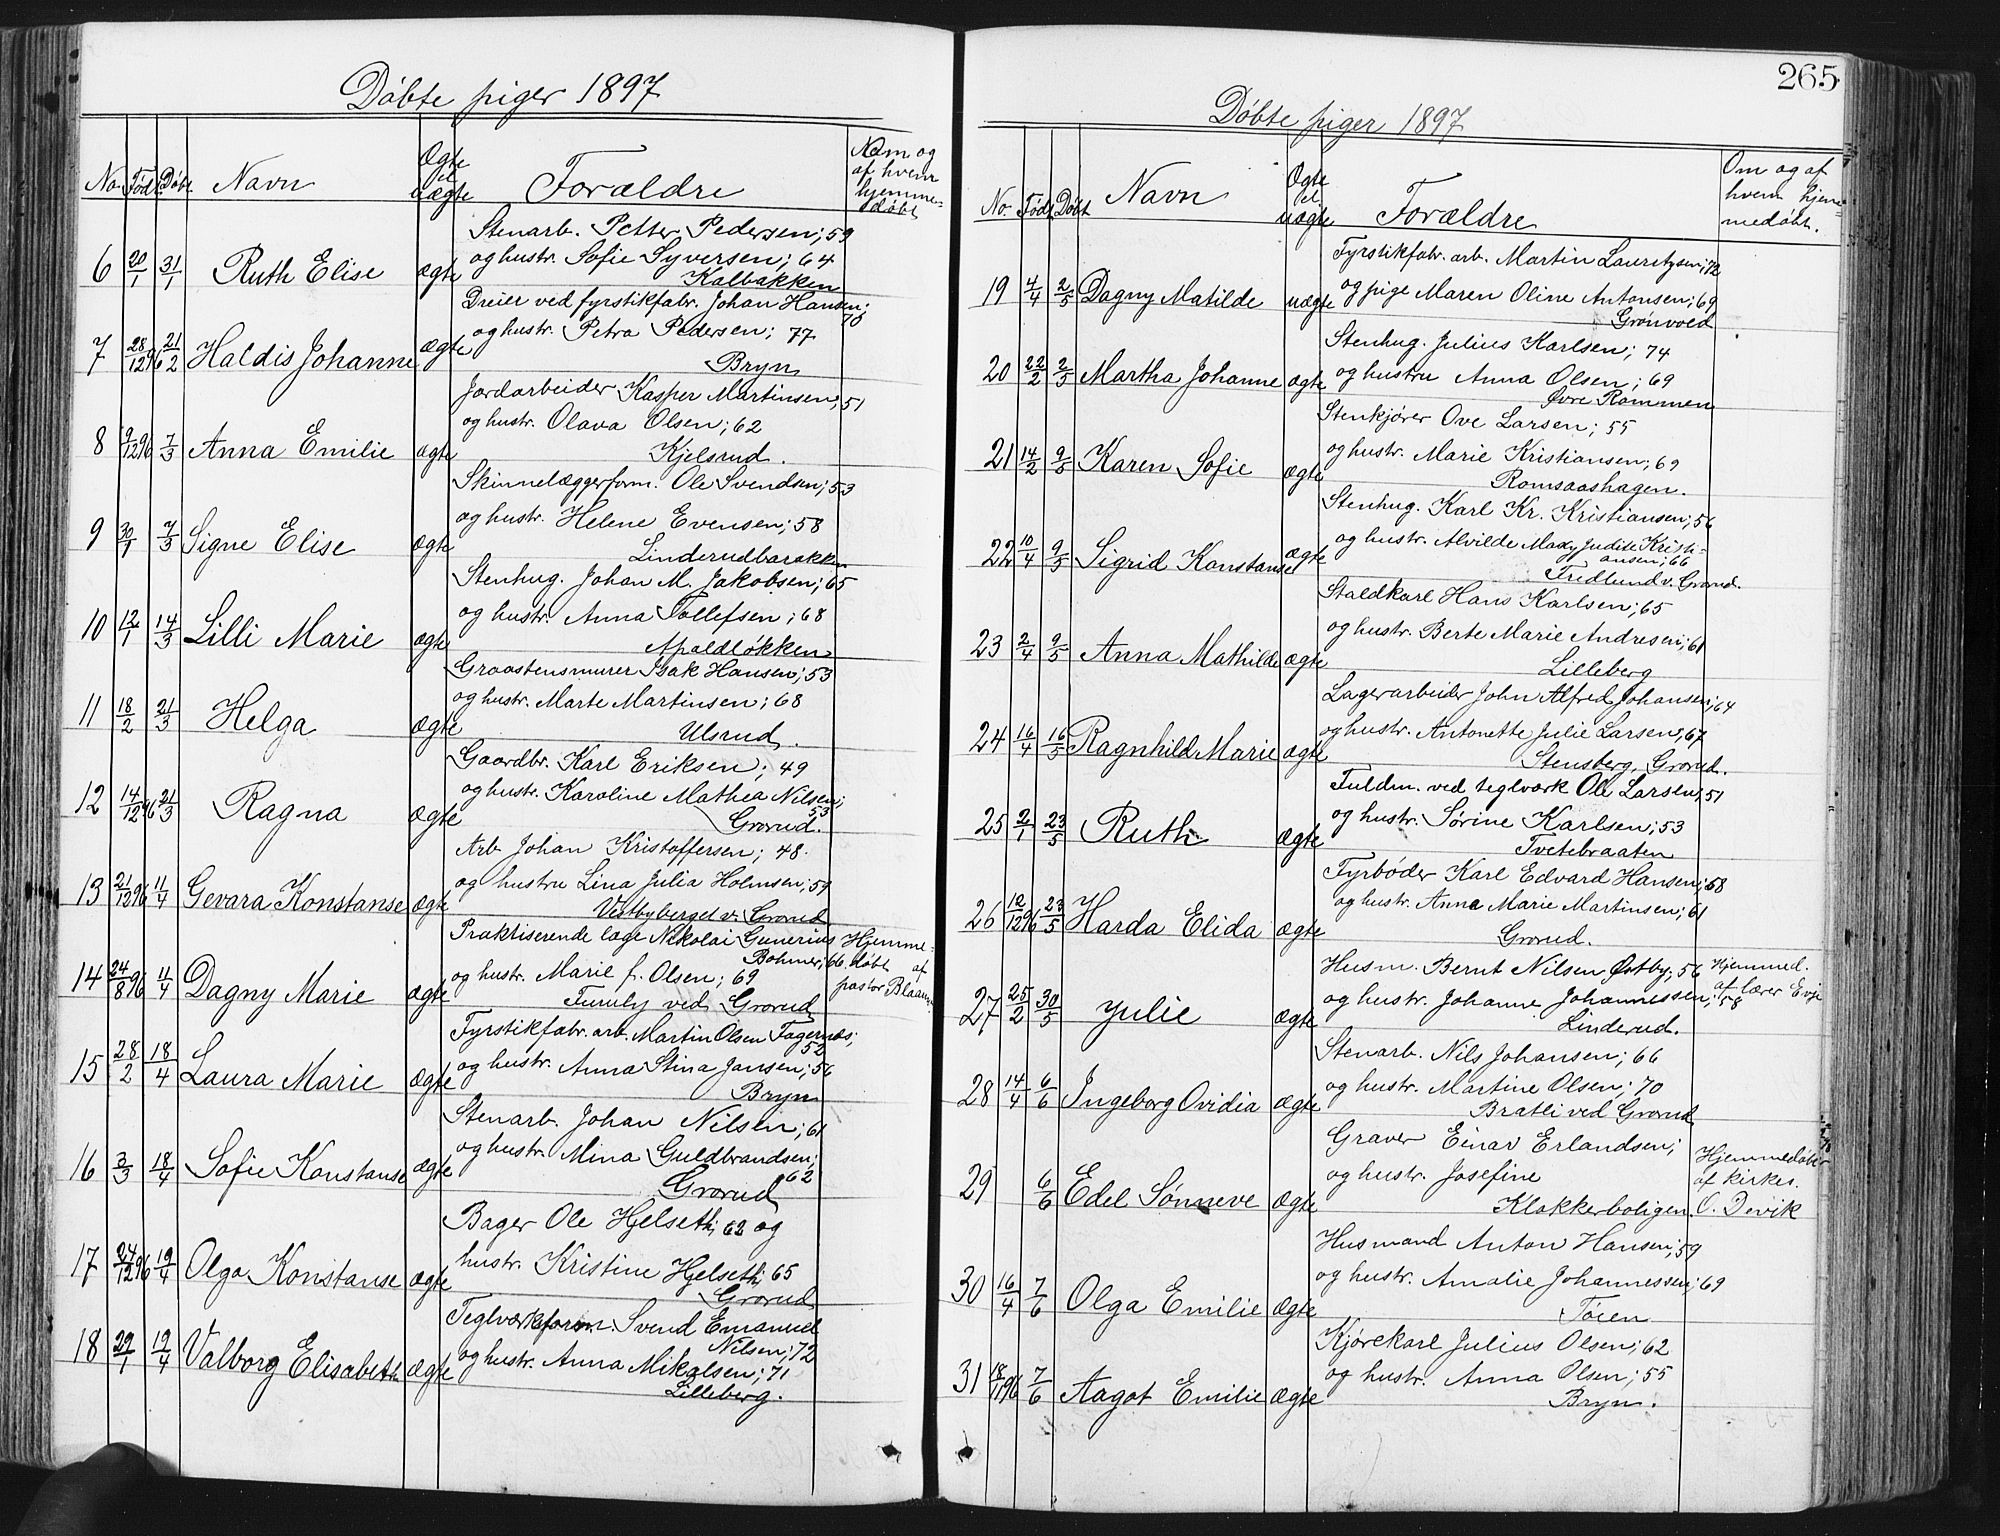 Døbte piger 1897
No. Født Døbt Navn Ægte el. uægte Forældre Nam og af hvem hjemme-døbt
Stenarb. Petter Pedersen; 59
6 20/1 31/1 Ruth Elise ægte og hustr. Sofie Syversen; 64
Kalbakken
Dreier ved fyrstikfabr. Johan Hansen; 70
7 28/12 96 21/2 Haldis Johanne ægte og hustr. Petra Pedersen; 77
Bryn
Jordarbeider Kasper Martinsen, 51
8 9/12 96 7/3 Anna Emilie ægte og hustr. Olava Olsen; 62
Kjelsrud.
Skinnelæggerform. Ole Svendsen; 53
9 30/1 7/3 Signe Elise ægte og hustr. Helene Evensen; 58
Linderudbarakken
Stenhug. Johan M. Jakobsen; 65
10 12/1 14/3 Lilli Marie ægte og hustr. Anna Tollefsen; 68
Apaldløkken
Graastensmurer Isak Hansen; 53
11 18/2 21/3 Helga ægte og hustr. Marte Martinsen; 68
Ulsrud.
Gaardbr. Karl Eriksen; 49
12 14/12 96 21/3 Ragna ægte og hustr. Karoline Mathea Nilsen; 53
Grorud.
Arb. Johan Kristoffersen; 48.
13 21/12 96 11/4 Gevara Konstanse ægte og hustru Lina Julia Holmsen; 59
Vestbyberget v. Grorud
Praktiserende læge Nikolai Gunerius Bohmer; 66. Hjemme-døbt af pastor Blaauw
14 24/8 96 11/4 Dagny Marie ægte og hustr. Marie f. Olsen; 69
Furuly ved Grorud
Fyrstikfabr. arb. Martin Olsen Fagernæs; 52
15 28/2 18/4 Laura Marie ægte og hustr. Anna Stina Jansen; 56
Bryn
Stenarb. Johan Nilsen; 61
16 3/3 18/4 Sofie Konstanse ægte og hustr. Mina Guldbrandsen; 62
Grorud
Bager Ole Hjelseth; 62 og
17 24/12 96 19/4 Olga Konstanse ægte hustr. Kristine Hjelseth; 65
Grorud
Teglværksform. Svend Emanuel Nilsen; 72
18 29/1 19/4 Valborg Elisabeth ægte og hustr. Anna Mikalsen; 71
Lilleberg.
265
Døbte piger 1897
No. Født Døbt Navn Ægte el. uægte Forældre Om og af hvem hjem-medøbt.
Fyrstikfabr. arb. Martin Lauritzsen; 72
19 4/4 2/5 Dagny Matilde uægte og pige Maren Oline Antonsen; 69
Grønvold
Stenhug. Julius Karlsen; 74
20 22/2 2/5 Martha Johanne ægte og hustru Anna Olsen; 69
Øvre Rommen
Stenkjører Ove Larsen; 55
21 14/2 9/5 Karen Sofie ægte og hustr. Marie Kristiansen; 69
Romsaashagen.
Stenhug. Karl Kr. Kristiansen; 56
22 10/4 9/5 Sigrid Konstanse ægte og hustr. Alvilde Maxy Judite Kristi-
ansen; 66
Fredlund v. Grorud.
Staldkarl Hans Karlsen; 65
23 2/4 9/5 Anna Mathilde ægte og hustr. Berte Marie Andresen; 61
Lilleberg
Lagerarbeider John Alfred Johansen; 64
24 16/4 16/5 Ragnhild Marie ægte og hustr. Antonette Julie Larsen, 67
Stensberg, Grorud.
Fuldm. ved teglværk Ole Larsen, 51
25 2/1 23/5 Ruth ægte og hustr. Sørine Karlsen; 53
Tvetebraaten
Fyrbøder Karl Edvard Hansen; 58
26 12/12 96 23/5 Harda Elida ægte og hustr. Anna Marie Martinsen; 61
Grorud.
Husm. Bernt Nilsen Østby; 56 Hjemmed. af lærer Evje
27 25/2 30/5 Julie ægte og hustr. Johanne Johannessen; 58
Linderud.
Stenarb. Nils Johansen; 66
28 14/4 6/6 Ingeborg Ovidia ægte og hustr. Martine Olsen; 70
Bratli ved Grorud
Graver Einar Erlandsen; Hjemmedøbt af kirkes. O. Devik
29 6/6 Edel Sønneve ægte og hustr. Josefine
Klokkerboligen.
Husmand Anton Hansen; 59
30 16/4 7/6 Olga Emilie ægte og hustr. Amalie Johannessen; 69
Tøien
Kjørekarl Julius Olsen; 62
31 18/11 96 7/6 Aagot Emilie ægte og hustr. Anna Olsen; 55
Bryn.